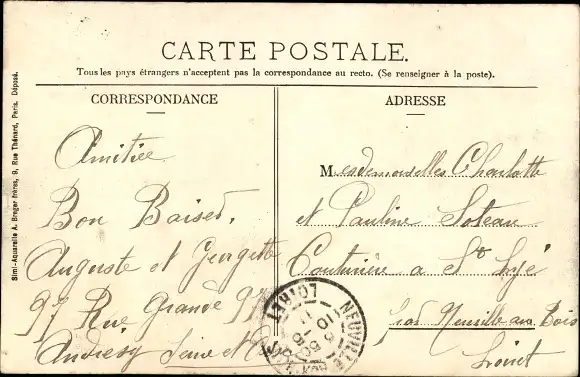 CARTE POSTALE.
Tous les pays étrangers n'acceptent pas la correspondance au recto. (Se renseigner à la poste).
Simi-Aquarelle A. Breger frères, 9, Rue Thénard, Paris. Déposé.
CORRESPONDANCE
Amitiée
Bon Baiser,
Auguste et Georgette
97 Rue Grande 97
Andresy Seine et O
ADRESSE
Mesdemoiselles Charlotte
et Pauline Soteau
Couturière a St Lyé
par Neuville au Bois
Loiret
NEUVILLE
LOIRET